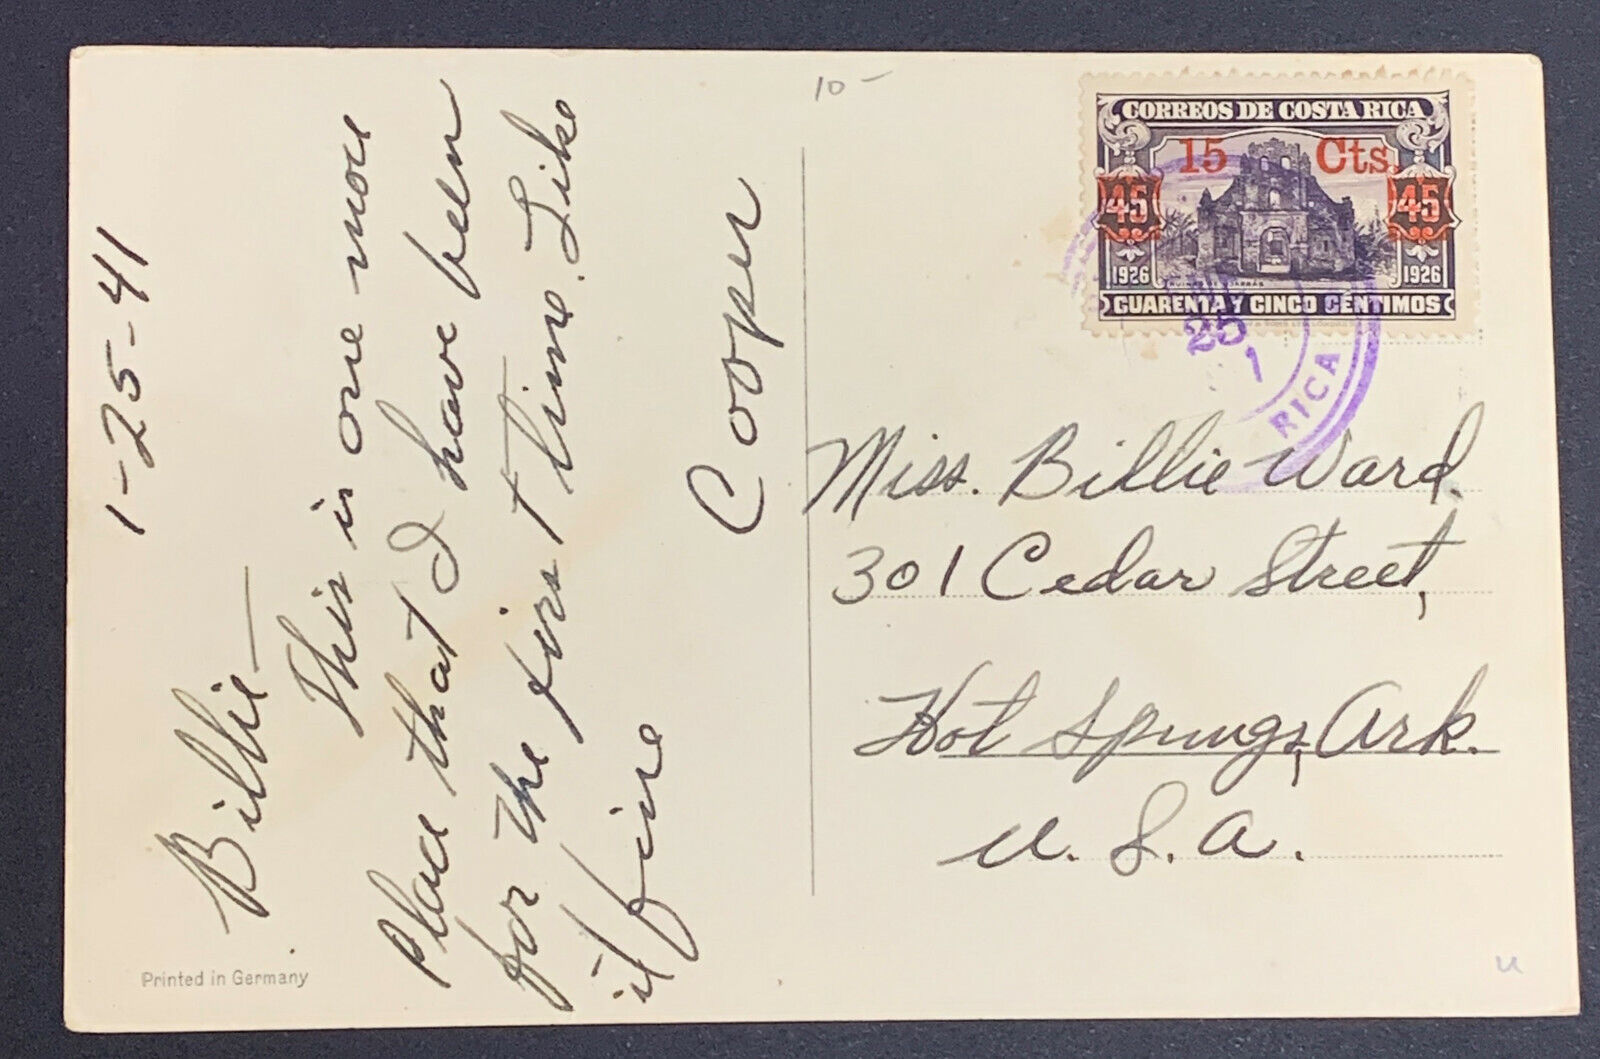 1-25-41
Billie—
This is one more
place that I have been
for the first time. Like
it fine
Cooper
Printed in Germany
10-
CORREOS DE COSTA RICA
15 Cts.
45 45
1926 1926
CUARENTA Y CINCO CENTIMOS
25
1
RICA
Miss. Billie Ward.
301 Cedar Street,
Hot Springs, Ark.
U. S. A.
u